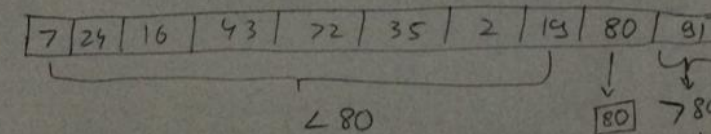 7 24 16 43 72 35 2 19 80 91
< 80 80 > 80